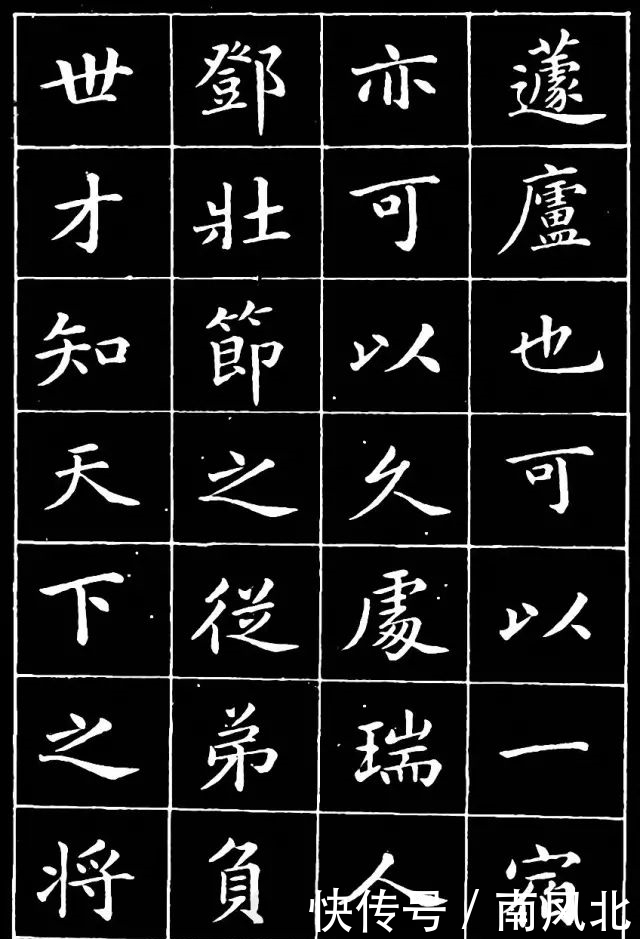 蘧廬也可以一宿
亦可以久處瑞人
鄧壯節之從弟負
世才知天下之將
快传号/南风北